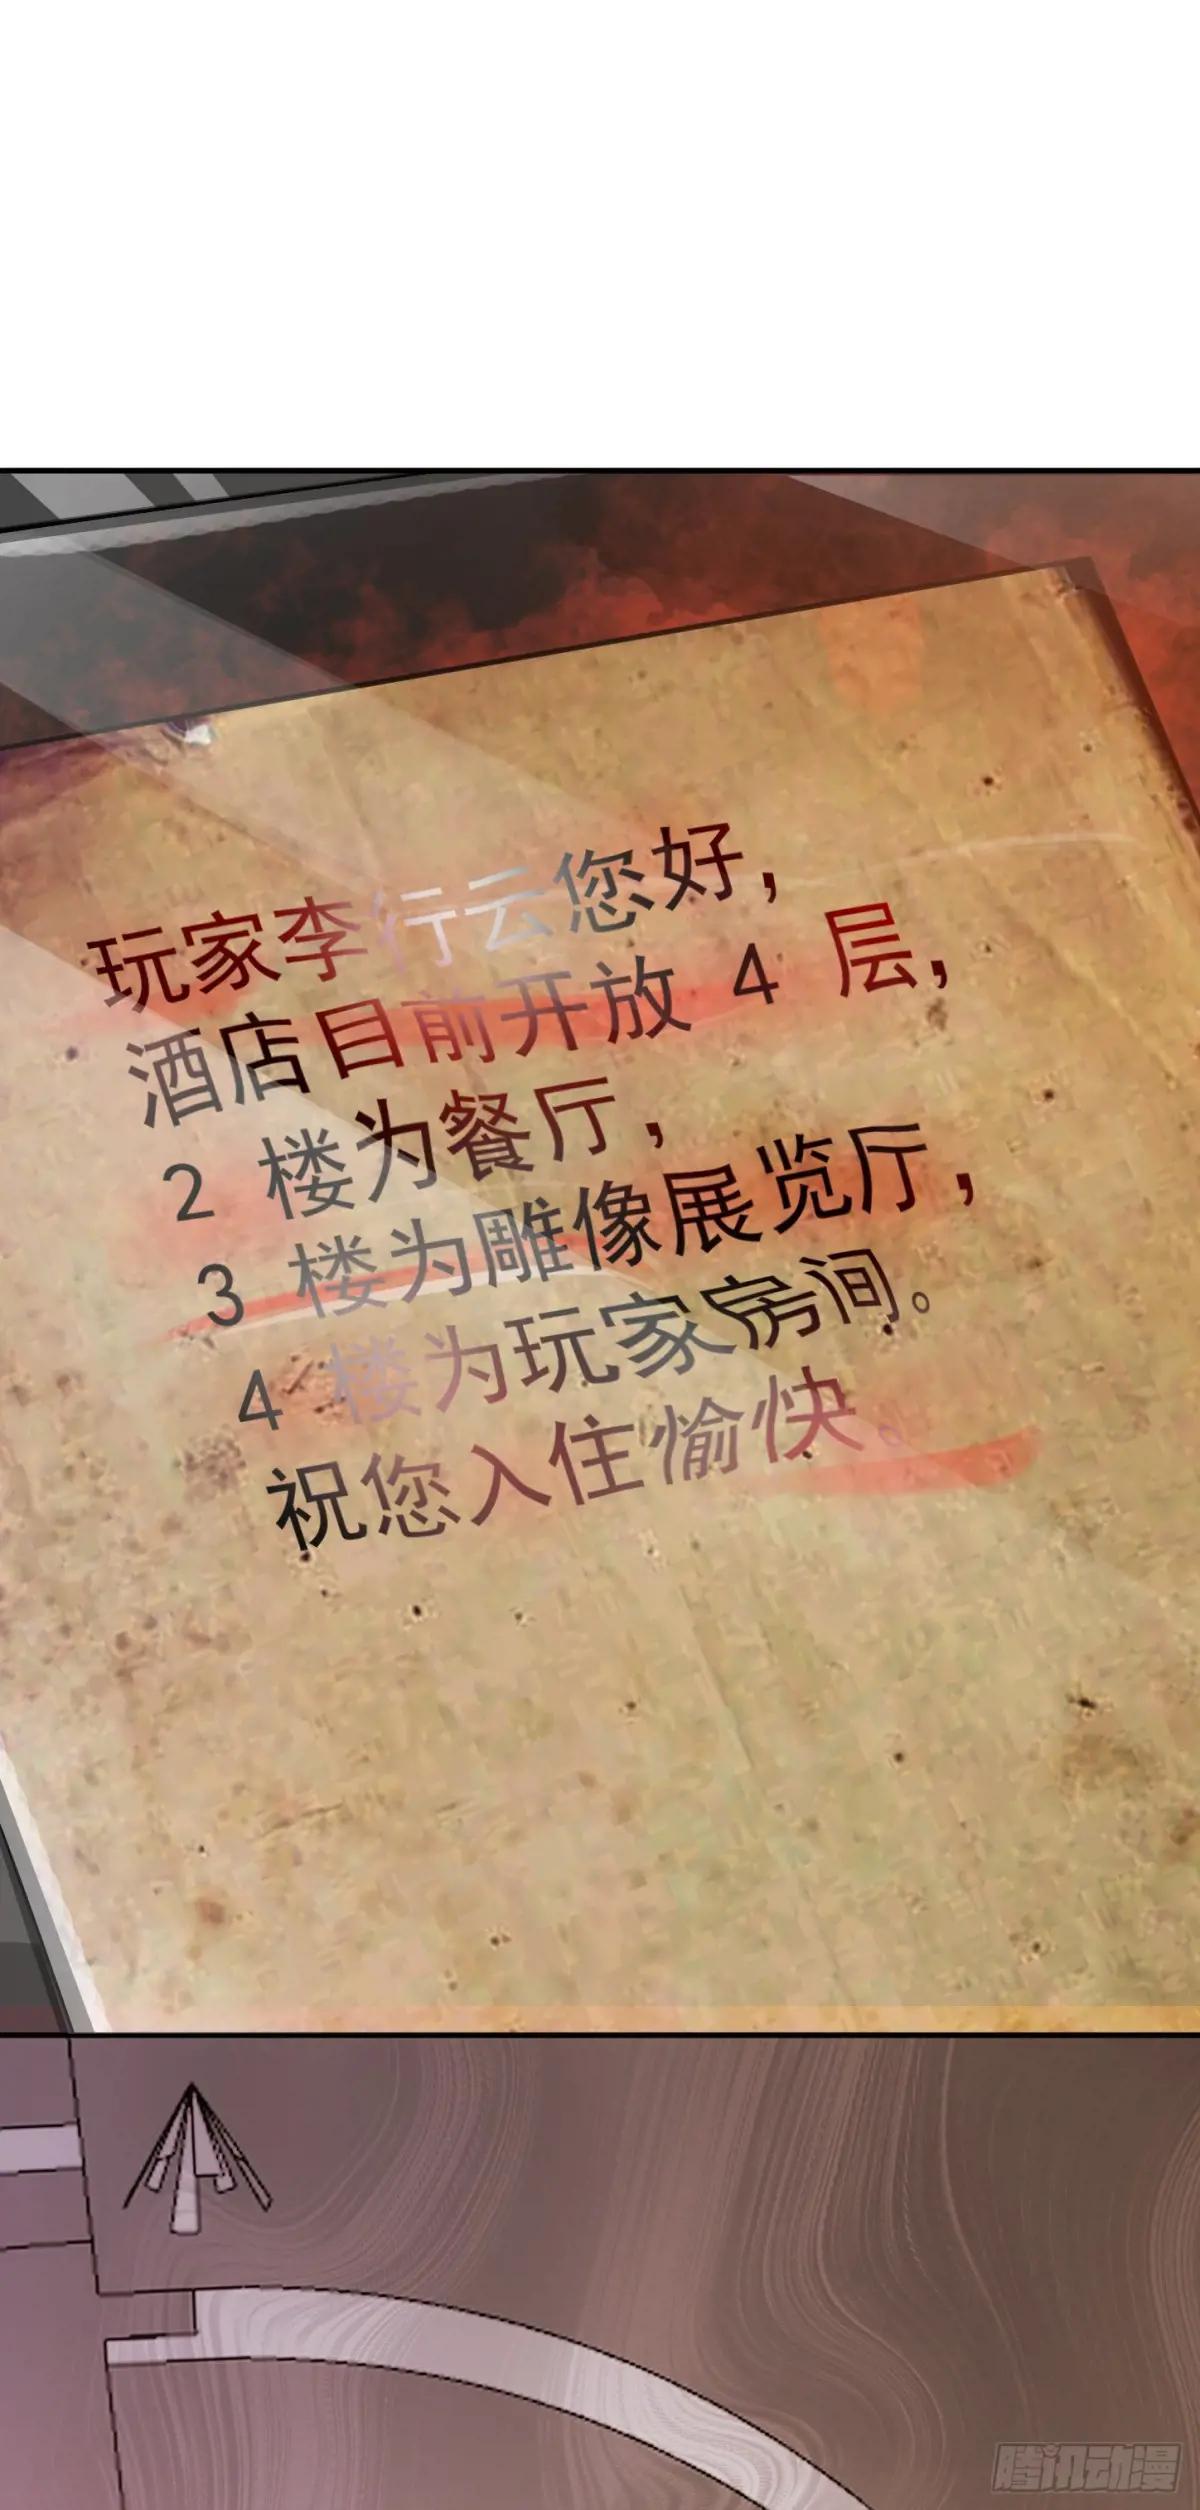 玩家李行云您好，
酒店目前开放 4 层，
2 楼为餐厅，
3 楼为雕像展览厅，
4 楼为玩家房间。
祝您入住愉快。
腾讯动漫